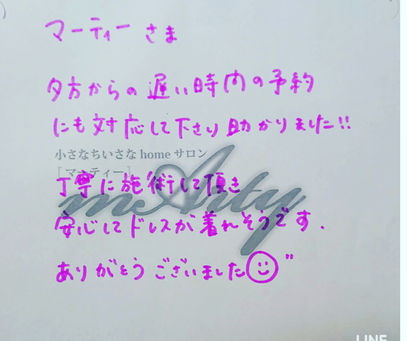 マーティー さま
夕方からの 遅い時間の予約
にも対応して下さり助かりました!!
小さなちいさな home サロン
[マーティー]
mArty
丁寧に施術して頂き
安心してドレスが着れそうです.
ありがとうございました☺"
LINE